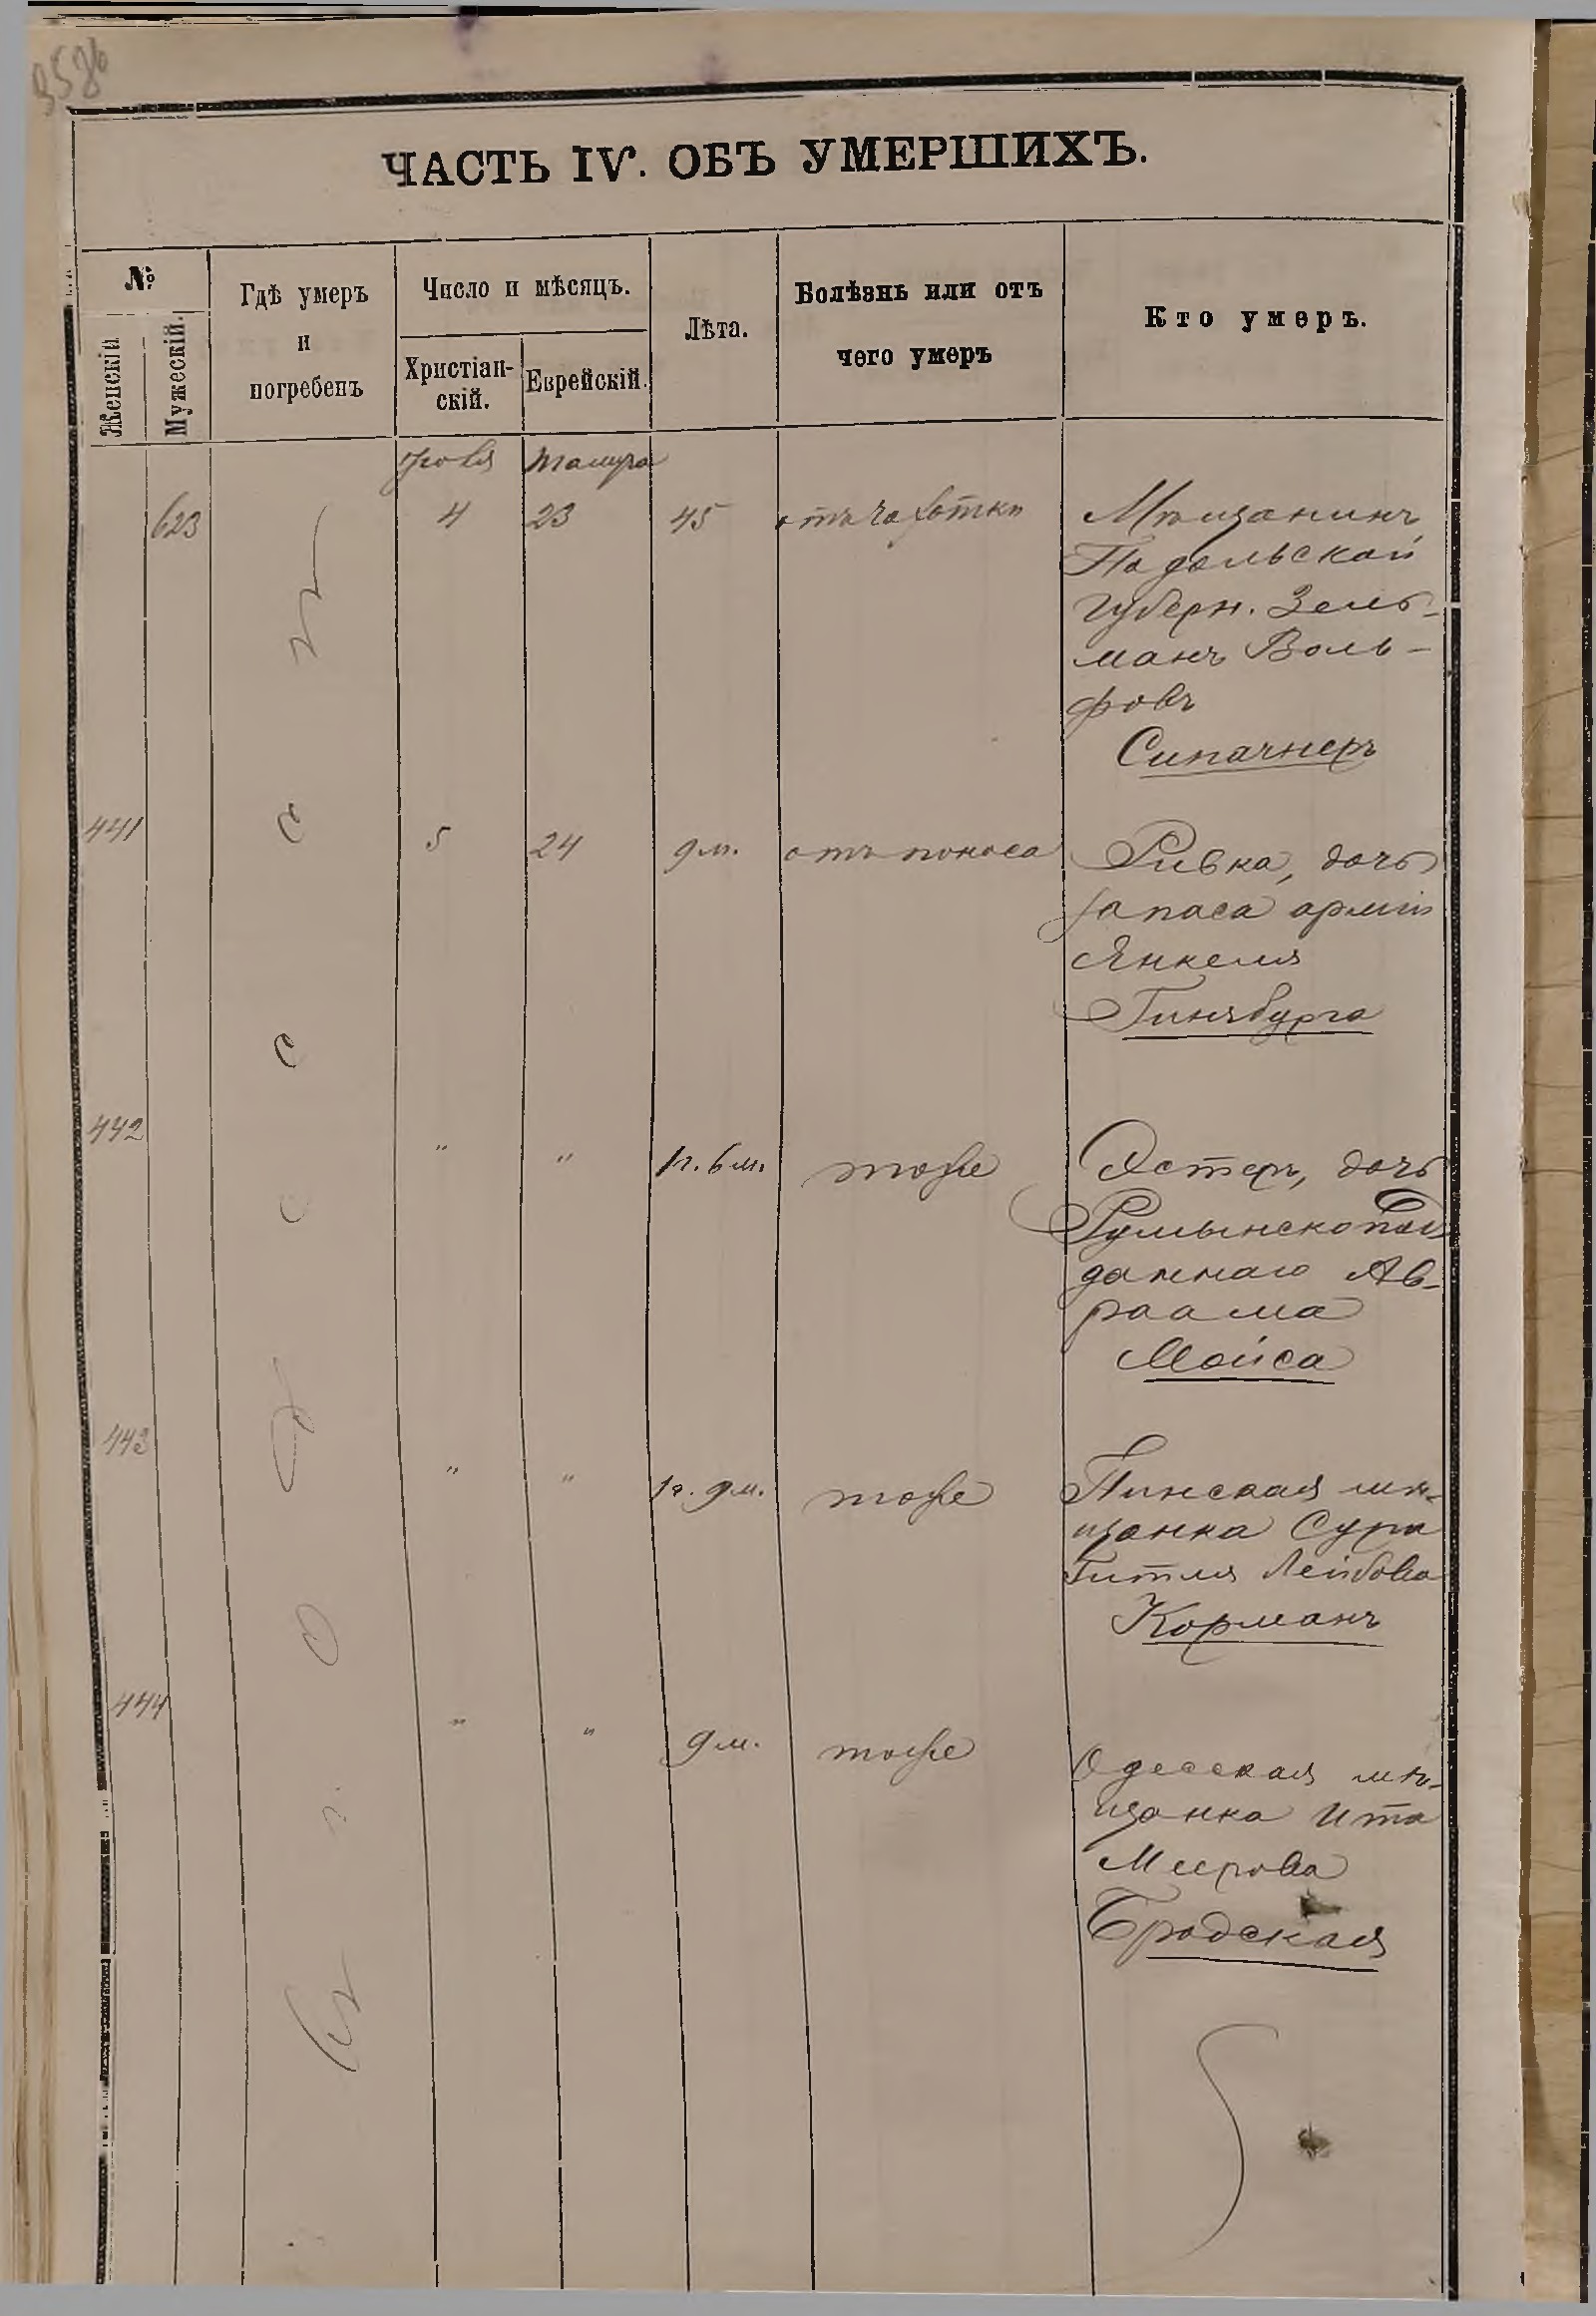 ЧАСТЬ IV. ОБЪ УМЕРШИХЪ.
№
Женскій
Мужескій.
Гдѣ умеръ
и
погребенъ
Число и мѣсяцъ.
Христіан-
скій.
Еврейскій.
Лѣта.
Болѣзнь или отъ
чего умеръ
Кто умеръ.
Тамуза
623 4 23 45 отъ чахотки Мѣщанинъ
Подольской
Губерн. Зель-
манъ Воль-
фовъ
Сипачнеръ
441 5 24 9 м. отъ поноса Ривка, дочь
запаса арміи
Янкеля
Гинзбурга
442 " " 1 г. 6 м. тоже Эстеръ, дочь
Румынскопод
даннаго Ав-
раама
Мойса
443 " " 1 г. 9 м. тоже Пинская мѣ-
щанка Сура
Гитля Лейбова
Корманъ
444 " " 9 м. тоже Одесская мѣ-
щанка Ита
Меерова
Бродская
О д е с с ъ